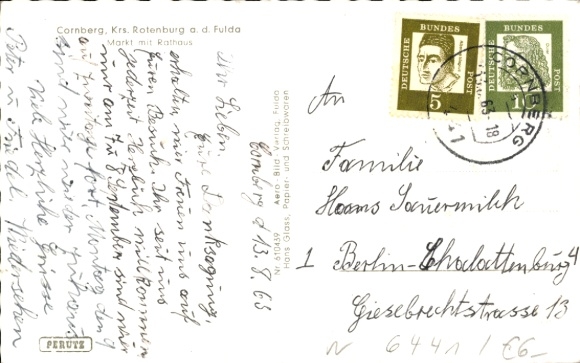 Cornberg, Krs. Rotenburg a. d. Fulda
Markt mit Rathaus
Cornberg d 13.8.63
Ihr Lieben
Eure Danksagung
erhalten wir freuen uns auf
Euren Besuch. Ihr seit uns
jederzeit Herzlich willkommen
nur am 7 u 8 September sind wir
auf
Montag den 9
sind wir wieder zurück
Viele Herzliche Grüsse
Wiedersehen
Peter u
PERUTZ
Nr. 610439 Aero-Bild-Verlag, Fulda
Hans Glass, Papier- und Schreibwaren
DEUTSCHE BUNDES POST
5
DEUTSCHE BUNDES POST
10
CORNBERG
63-18
An
Familie
Haans Sauermilch
1 Berlin-Chalattenburg 4
Giesebrechtstrasse 13
N 6441 / €6-